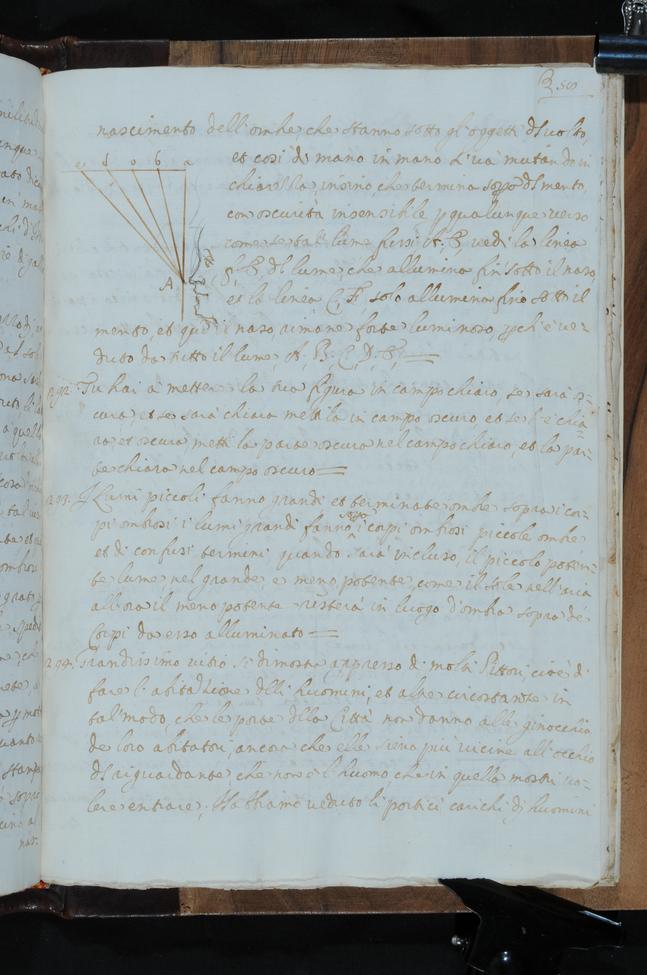 nascimento dell'ombre che stanno sotto gl'oggetti del volto,
e d c b a
et così di mano in mano si và mutando in
chiarezza, insino, che termina sopra del mento,
con oscurità insensibile p qualunque verso
come se tal lume fussi A. E, vedi la linea
f. E, del lume, che allumina fin sotto il naso,
et la linea C, F, solo allumina fino sotto il
A
mento, et qui il naso, rimane forte luminoso, pch'è ve-
duto da tutto il lume, A. B. C, D. E,
292. Tu hai à mettere la tua figura in campo chiaro, se sarà os-
cura, et se sarà chiara metti la in campo oscuro, et se l'è chia-
ra, et oscura, metti la parte oscura nel campo chiaro, et la par-
te chiara nel campo oscuro
293. I Lumi piccoli fanno grandi et terminate ombre sopra i cor-
sopra
pi ombrosi i lumi grandi fanno i corpi ombrosi piccole ombre
et di confusi termini quando sarà incluso, il piccolo poten-
te lume nel grande, e meno potente, come il sole nell'aria
all'ora il meno potente resterà in luogo d'ombra sopra de
Corpi da esso alluminato
294. Grandissimo vitio si dimostra appresso di molti Pittori, cioè di
fare l'abitatione delli huomini, et altre circostanze in
tal modo, che le porte della Città non danno alle ginocchia
de loro abitatori, ancora che elle sieno più vicine all'occhio
del riguardante, che non è l'huomo che in quella mostri vo-
lere entrare; Habbiamo veduto li portici carichi di huomini